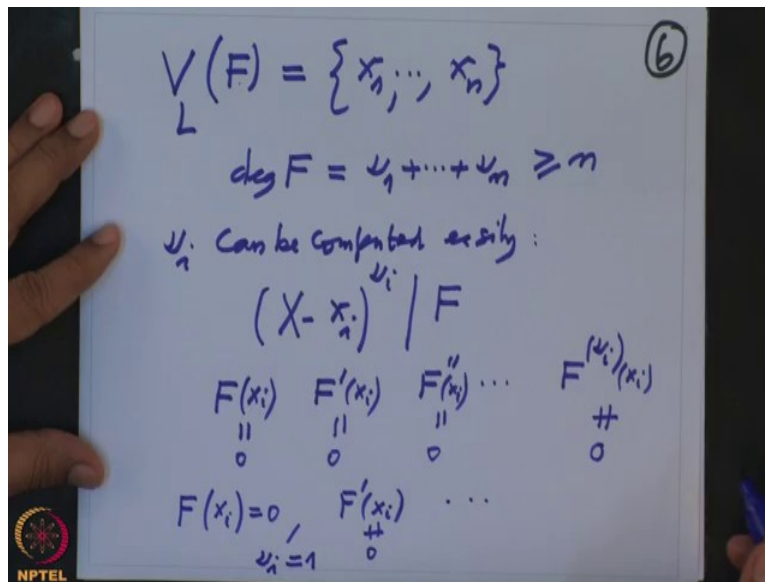 ⑥
V_L(F) = {x_1, ..., x_n}
deg F = ν_1 + ... + ν_n ≥ n
ν_i Can be computed easily :
(X - x_i)^{ν_i} | F
F(x_i) F'(x_i) F''(x_i) ... F^{(ν_i)}(x_i)
|| || || ≠
0 0 0 0
F(x_i) = 0 , F'(x_i) ...
ν_i = 1 ≠
0
NPTEL